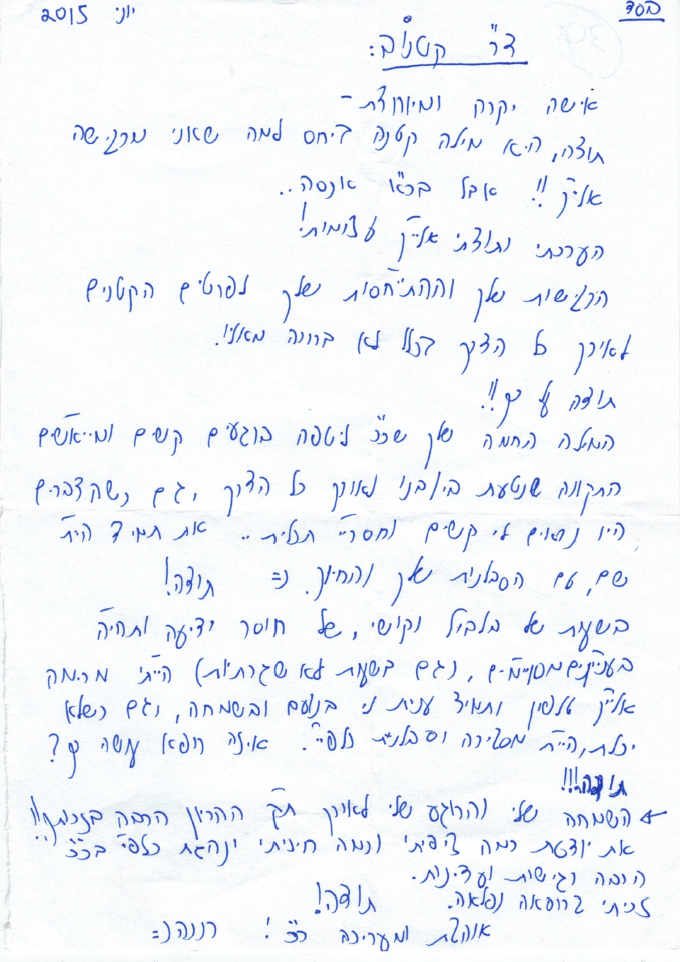 בסד
יוני 2015
דר' קטנוב:
אישה יקרה ומיוחדת -
תודה, היא מילה קטנה ביחס למה שאני מרגישה
אלייך!! אבל בכ"ז אנסה..
הערכתי ותודתי אלייך עצומות!
הרגישות שלך וההתייחסות שלך לפרטים הקטנים
לאורך כל הדרך בכלל לא ברורה מאליו.
תודה על כך!!
המילה החמה שלך שכ"כ ליטפה ברגעים קשים ומייאשים
התקווה שנטעת בי/בנו לאורך כל הדרך, גם כשהדברים
היו נראים לי קשים וחסרי תכלית.. את תמיד היית
שם, עם הסבלנות שלך והחיוך. (= תודה!
בשעות של בלבול וקושי, של חוסר ידיעה ותהיה
בעניינים מסויימים, (גם בשעות לא שגרתיות) הייתי מרימה
אלייך טלפון ותמיד ענית לי בנועם ובשמחה, וגם כשלא
יכלת, היית מסבירה וסבלנית כלפיי. איזה רופא עושה כך?
תודה!!!
השמחה שלי והרוגע שלי לאורך תק' ההריון הרבה בזכותך!!
את יודעת כמה ציפיתי וכמה חיכיתי ונהגת כלפיי בכ"כ
הרבה רגישות ועדינות.
זכיתי ברופאה נפלאה. תודה!
אוהבת ומעריכה כ"כ! רננה (=